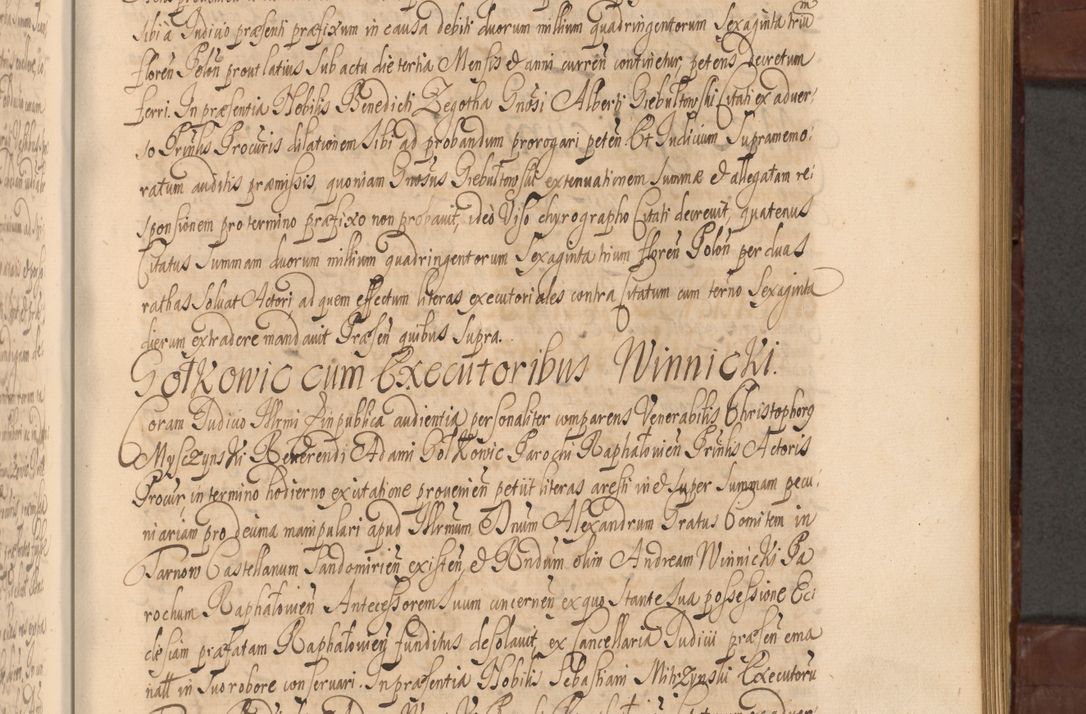 sibi a Iudicio præsenti præfixum in causa debiti duorum millium quadringentorum Sexaginta trium
floren Polon prout latius sub actu die tertia Mensis et anni curren continetur, petens Decretum
ferri. In præsentia Nobilis Benedicti Zegotha Gnosi Alberti Giebultowski Citati ex adver:
so Prinlis Procuris dilationem sibi ad probandum prorogari peten. Et Iudicium Supramemo:
ratum auditis præmissis, quoniam Gnosus Giebultowski extenuationem summæ et allegatam re:
sponsionem pro termino præfixo non probavit, ideo Viso chyrographo Citati decrevit, quatenus
Citatus summam duorum millium quadringentorum Sexaginta trium floren Polon per duas
rathas solvat Actori ad quem effectum literas executoriales contra Citatum cum terno Sexaginta
dierum extradere mandavit Præsen quibus supra.
Gołkowic cum Executoribus Winnicki.
Coram Iudicio Illrmi in publica audientia personaliter comparens Venerabilis Christophorg
Myszczynski Reverendi Adami Gołkowic Parochi Raphałowien Prinlis Actoris
Procur, in termino hodierno ex citatione provenien petiit literas aresti in et super summam pecu:
niariam pro decima manipulari apud Illrmum Dnum Alexandrum Gratus Comitem in
Tarnow Castellanum Sandomirien existen, et Rndum olim Andream Winnicki Pa
rochum Raphałowien Antecessorem suum concernen ex quo stante sua possessione Ec:
clesiam præfatam Raphałowien funditus desolavit, ex Cancellaria Iudicii præsen ema
natt in suo robore conservari. In præsentia Nobilis Sebastiani Mitrzynski Executoru